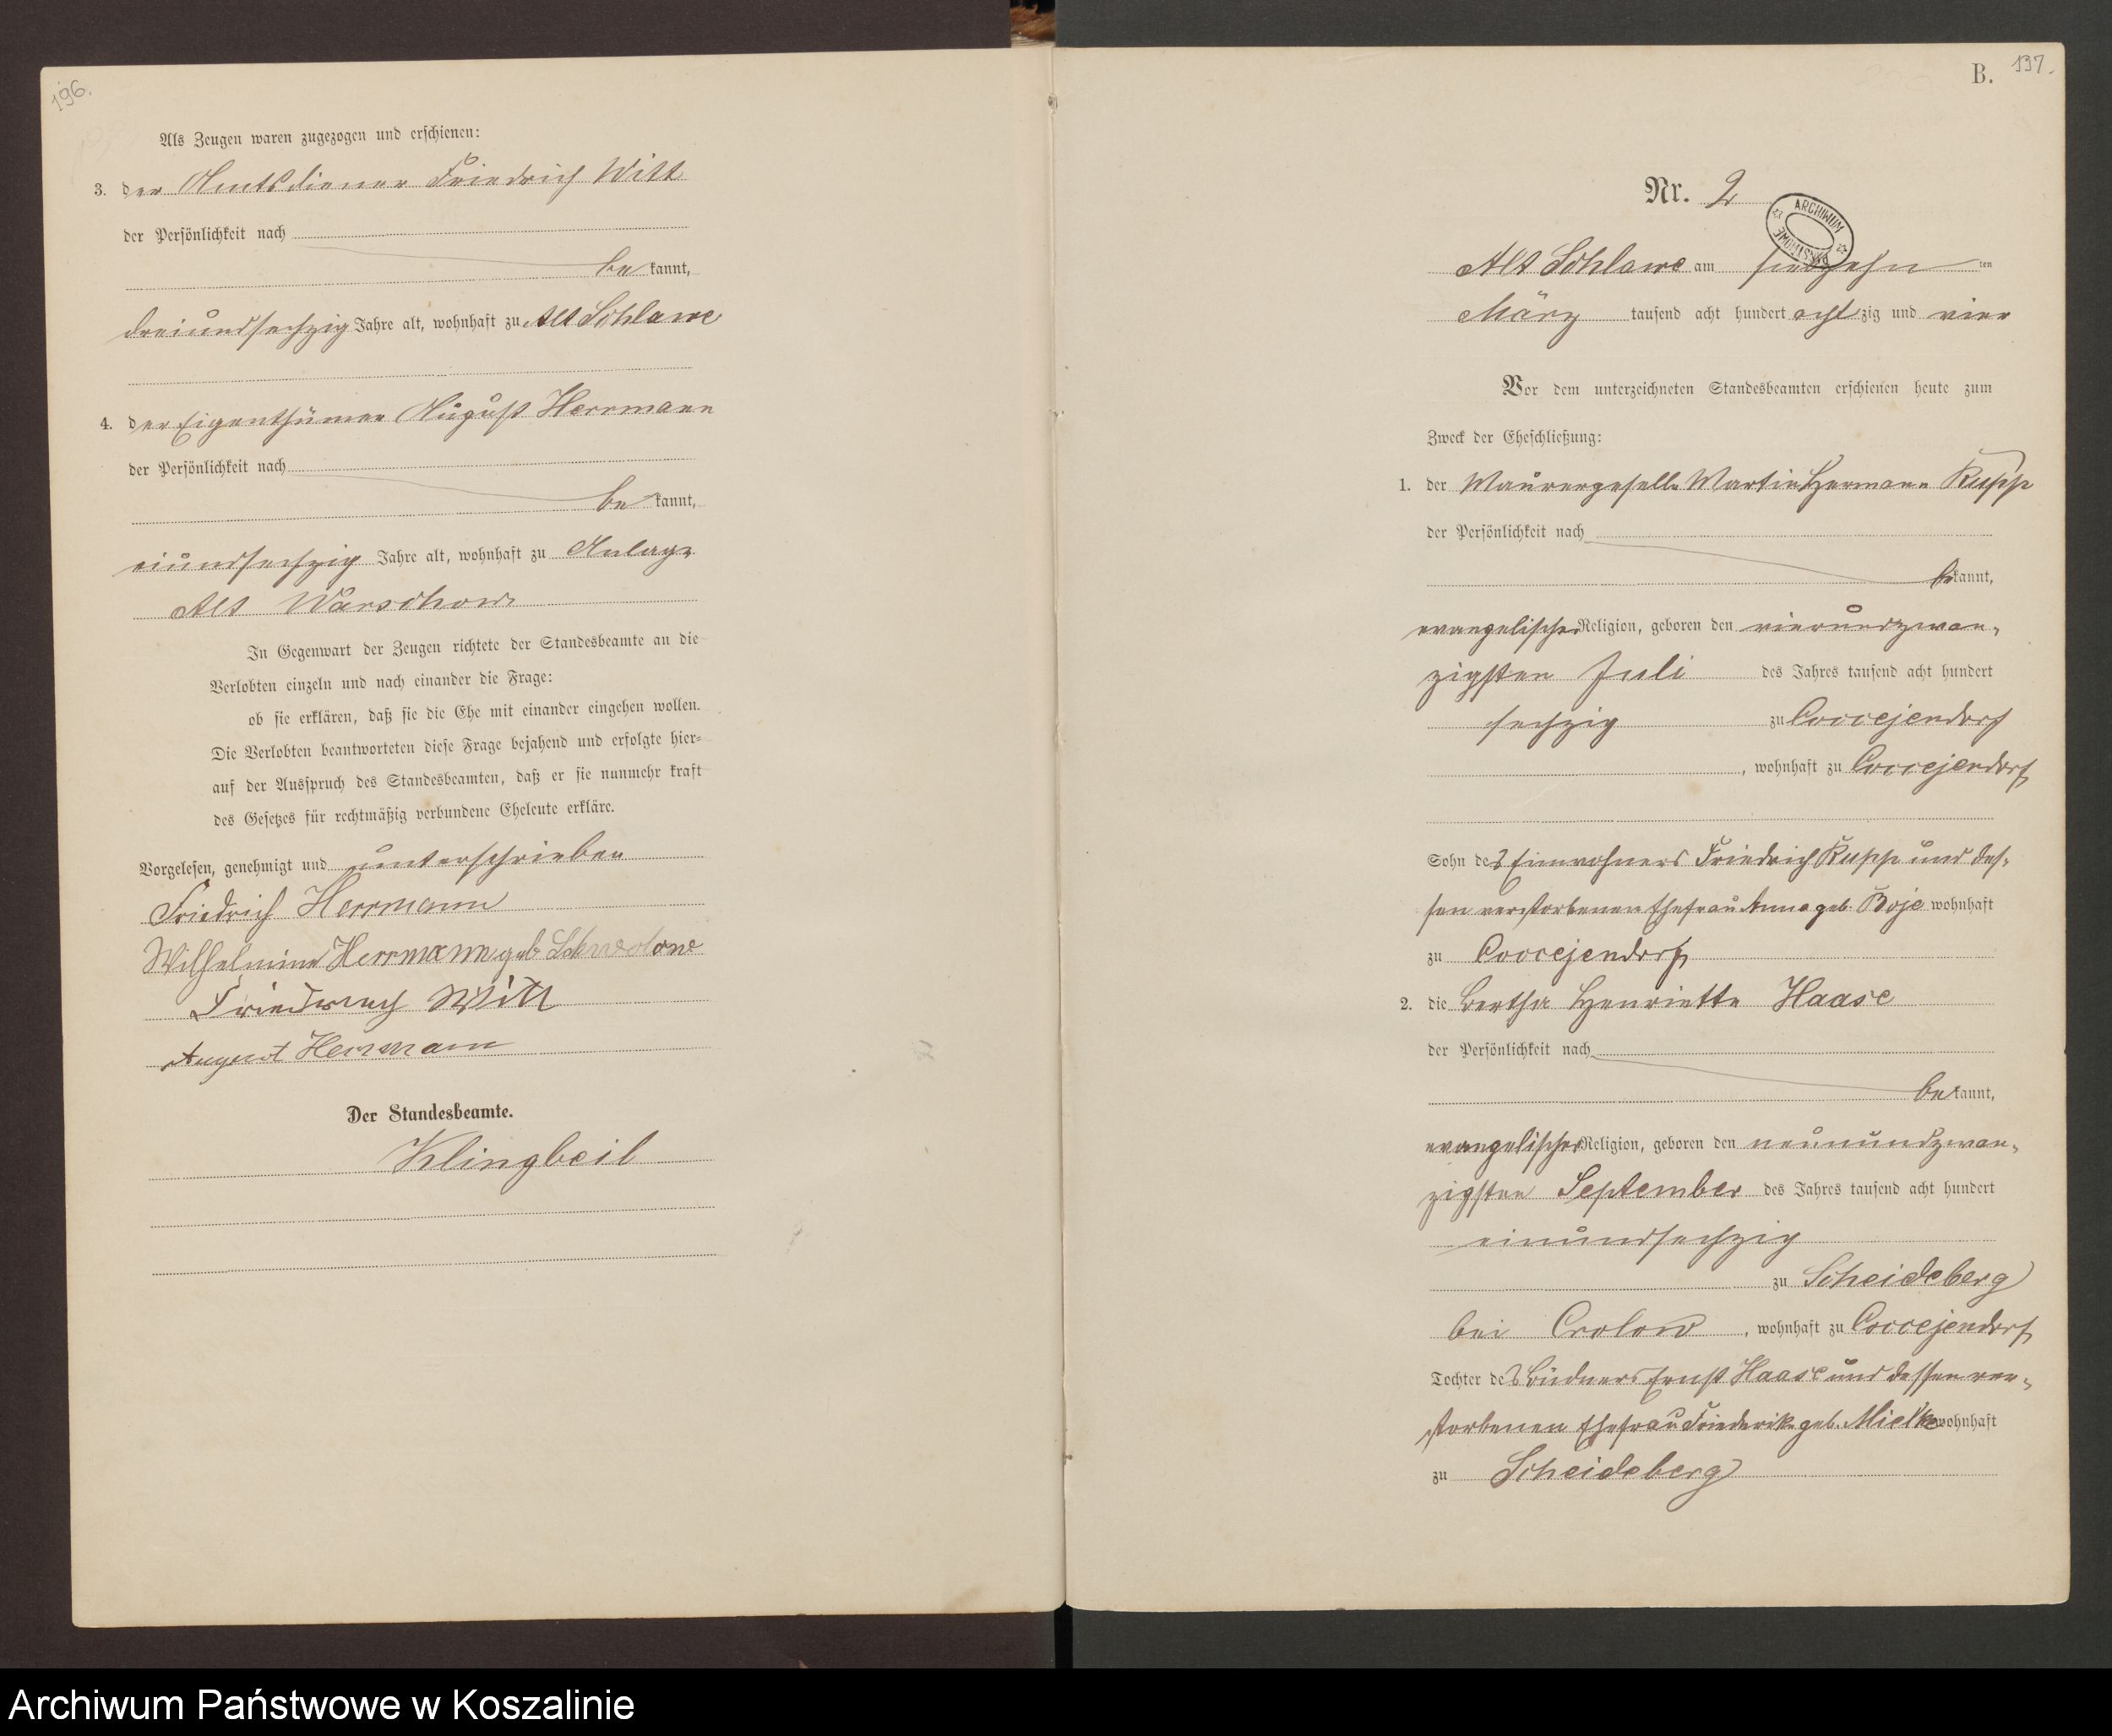 196.
Als Zeugen waren zugezogen und erschienen:
3. der Amtsdiener Friedrich Witt
der Persönlichkeit nach
bekannt,
dreiundsechzig Jahre alt, wohnhaft zu Alt Schlawe
4. der Eigenthümer August Herrmann
der Persönlichkeit nach
bekannt,
einundsechzig Jahre alt, wohnhaft zu Anlage
Alt Warschow
In Gegenwart der Zeugen richtete der Standesbeamte an die
Verlobten einzeln und nach einander die Frage:
ob sie erklären, daß sie die Ehe mit einander eingehen wollen.
Die Verlobten beantworteten diese Frage bejahend und erfolgte hier-
auf der Ausspruch des Standesbeamten, daß er sie nunmehr kraft
des Gesetzes für rechtmäßig verbundene Eheleute erkläre.
Vorgelesen, genehmigt und unterschrieben
Friedrich Herrmann
Wilhelmine Herrmann geb
Friedrich Witt
August Herrmann
Der Standesbeamte.
Klingbeil
B. 197.
Nr. 2
ARCHIWUM PAŃSTWOWE
Alt Schlawe am siebzehn ten
März tausend acht hundert achtzig und vier
Vor dem unterzeichneten Standesbeamten erschienen heute zum
Zweck der Eheschließung:
1. der Maurergeselle Martin Hermann Kupp
der Persönlichkeit nach
bekannt,
evangelischer Religion, geboren den vierundzwan-
zigsten Juli des Jahres tausend acht hundert
sechzig zu Coccejendorf
, wohnhaft zu Coccejendorf
Sohn des Einwohners Friedrich Kupp und des-
sen verstorbenen Ehefrau Anna geb. Boje wohnhaft
zu Coccejendorf
2. die Bertha Henriette Haase
der Persönlichkeit nach
bekannt,
evangelischer Religion, geboren den neunundzwan-
zigsten September des Jahres tausend acht hundert
einundsechzig
zu Scheideberg
bei Crolow, wohnhaft zu Coccejendorf
Tochter des Büdners Ernst Haase und dessen ver-
storbenen Ehefrau Friederike geb. Mielke wohnhaft
zu Scheideberg
Archiwum Państwowe w Koszalinie